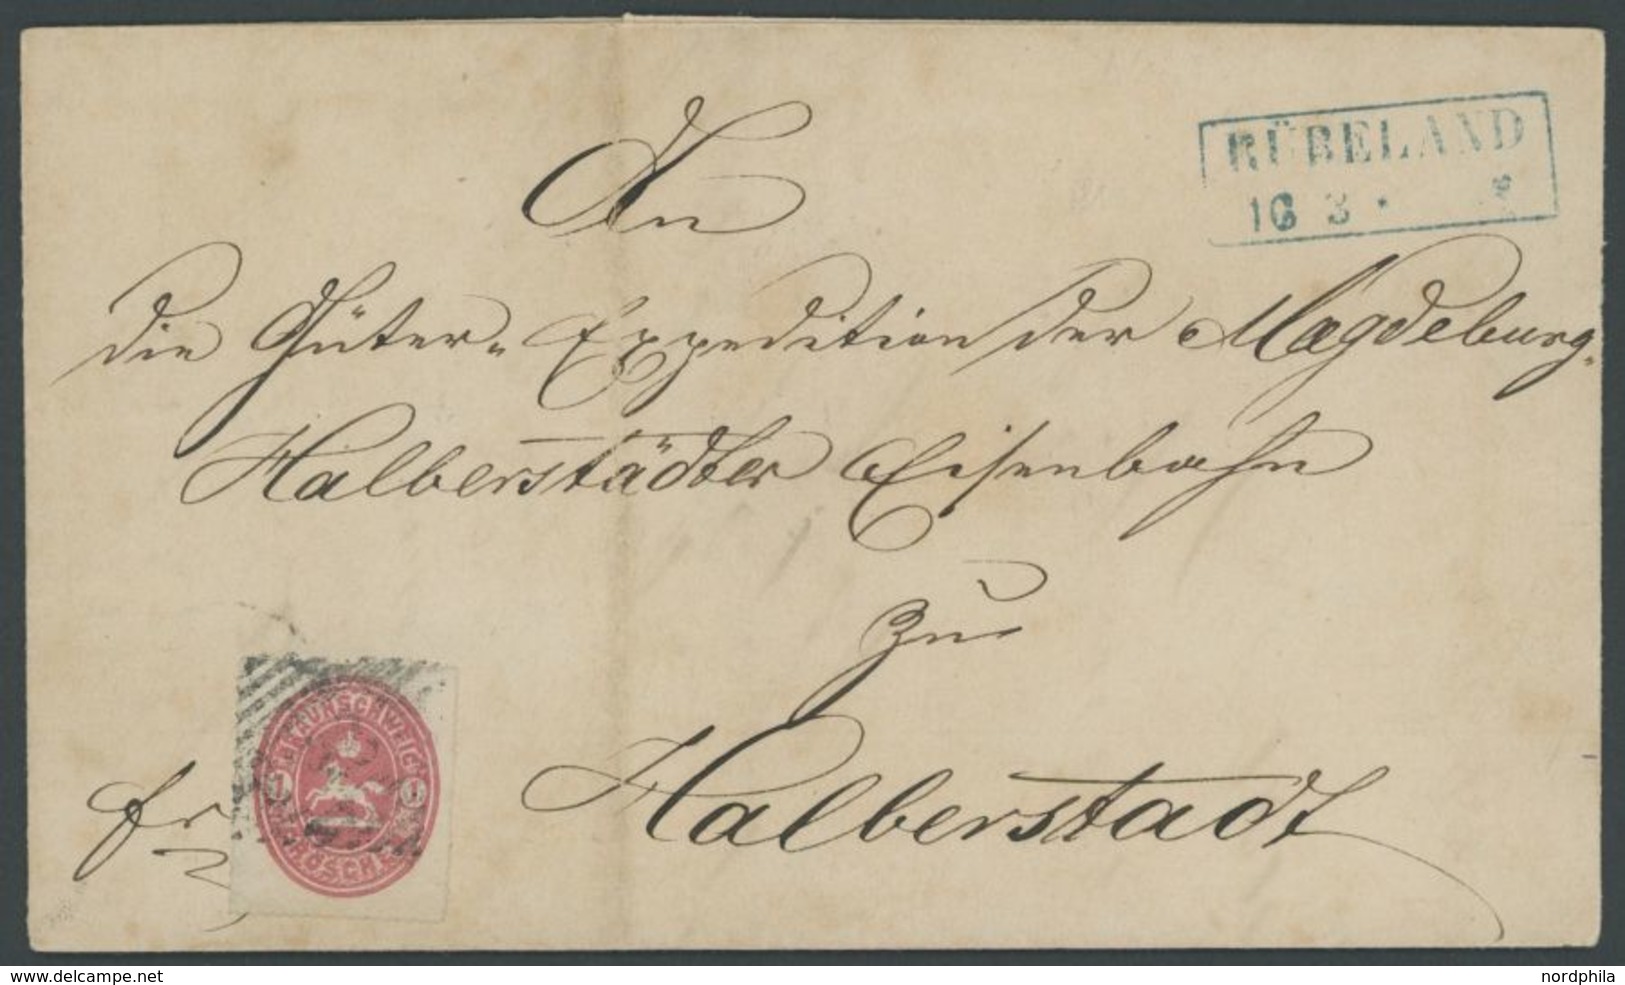 An
RÜBELAND
16 3 *
die Güter-Expedition der Magdeburg-
Halberstädter Eisenbahn
zu
Halberstadt
fr
BRAUNSCHWEIG
1 1
GROSCHEN
www.delcampe.net
nordphila